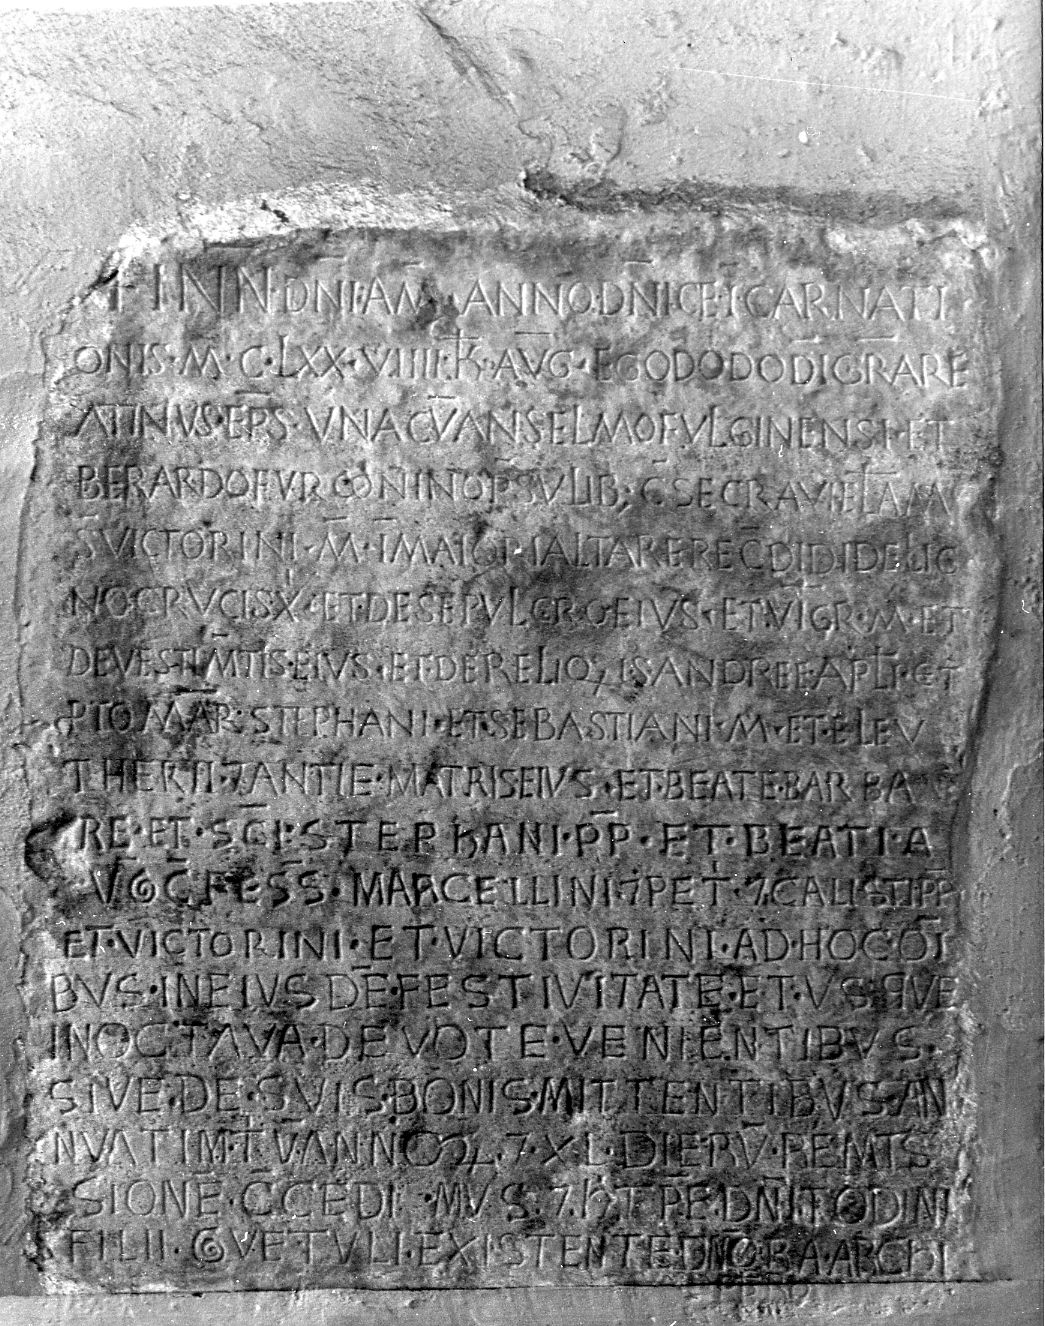 † IN N DNI · AM · ANNO · DNICE · ICARNATI
ONIS · M · C · LXX · VIIII · K · AVG · EGO DODO DI GRA RE
ATINVS · EPS · VNA CV ANSELMO FVLGINENSI · ET
BERARDO FVRCONINO PSVLIB; CSECRAVI ELAM
SVCTORINI · M · IMAIORI ALTARE RECDIDI DE LIG
NO CRVCIS X · ET · DE SEPVLCRO EIVS · ET · VIGR · M · ET
DE VESTIMTIS · EIVS · ET DE RELIQIS ANDREE APLI · ET
PTO MAR · STEPHANI · ET SEBASTIANI · M · ET · ELEV
THERII · 7 ANTIE · MATRIS EIVS · ET BEATE · BARBA
RE · ET · SCI · STEPHANI · PP · ET BEATI · A
VGG PP · E · SS · MARCELLINI 7 PET · 7 CALISTI PP
ET · VICTORINI · ET · VICTORINI · AD HOC OI
BVS · IN EIVS DE FESTIVITATE · ET · VSQVE
IN OCTAVA · DEVOTE · VENIENTIBVS
SIVE · DE · SVIS · BONIS MITTENTIBVS AN
NVATIM · T · VANNOL · 7 · XL · DIERV · REMIS
SIONE · CCEDI · MVS · 7 HT PE DNI TODINI
FILII · GVETVLI · EXISTENTE DNO RA ARCHI
PBRO